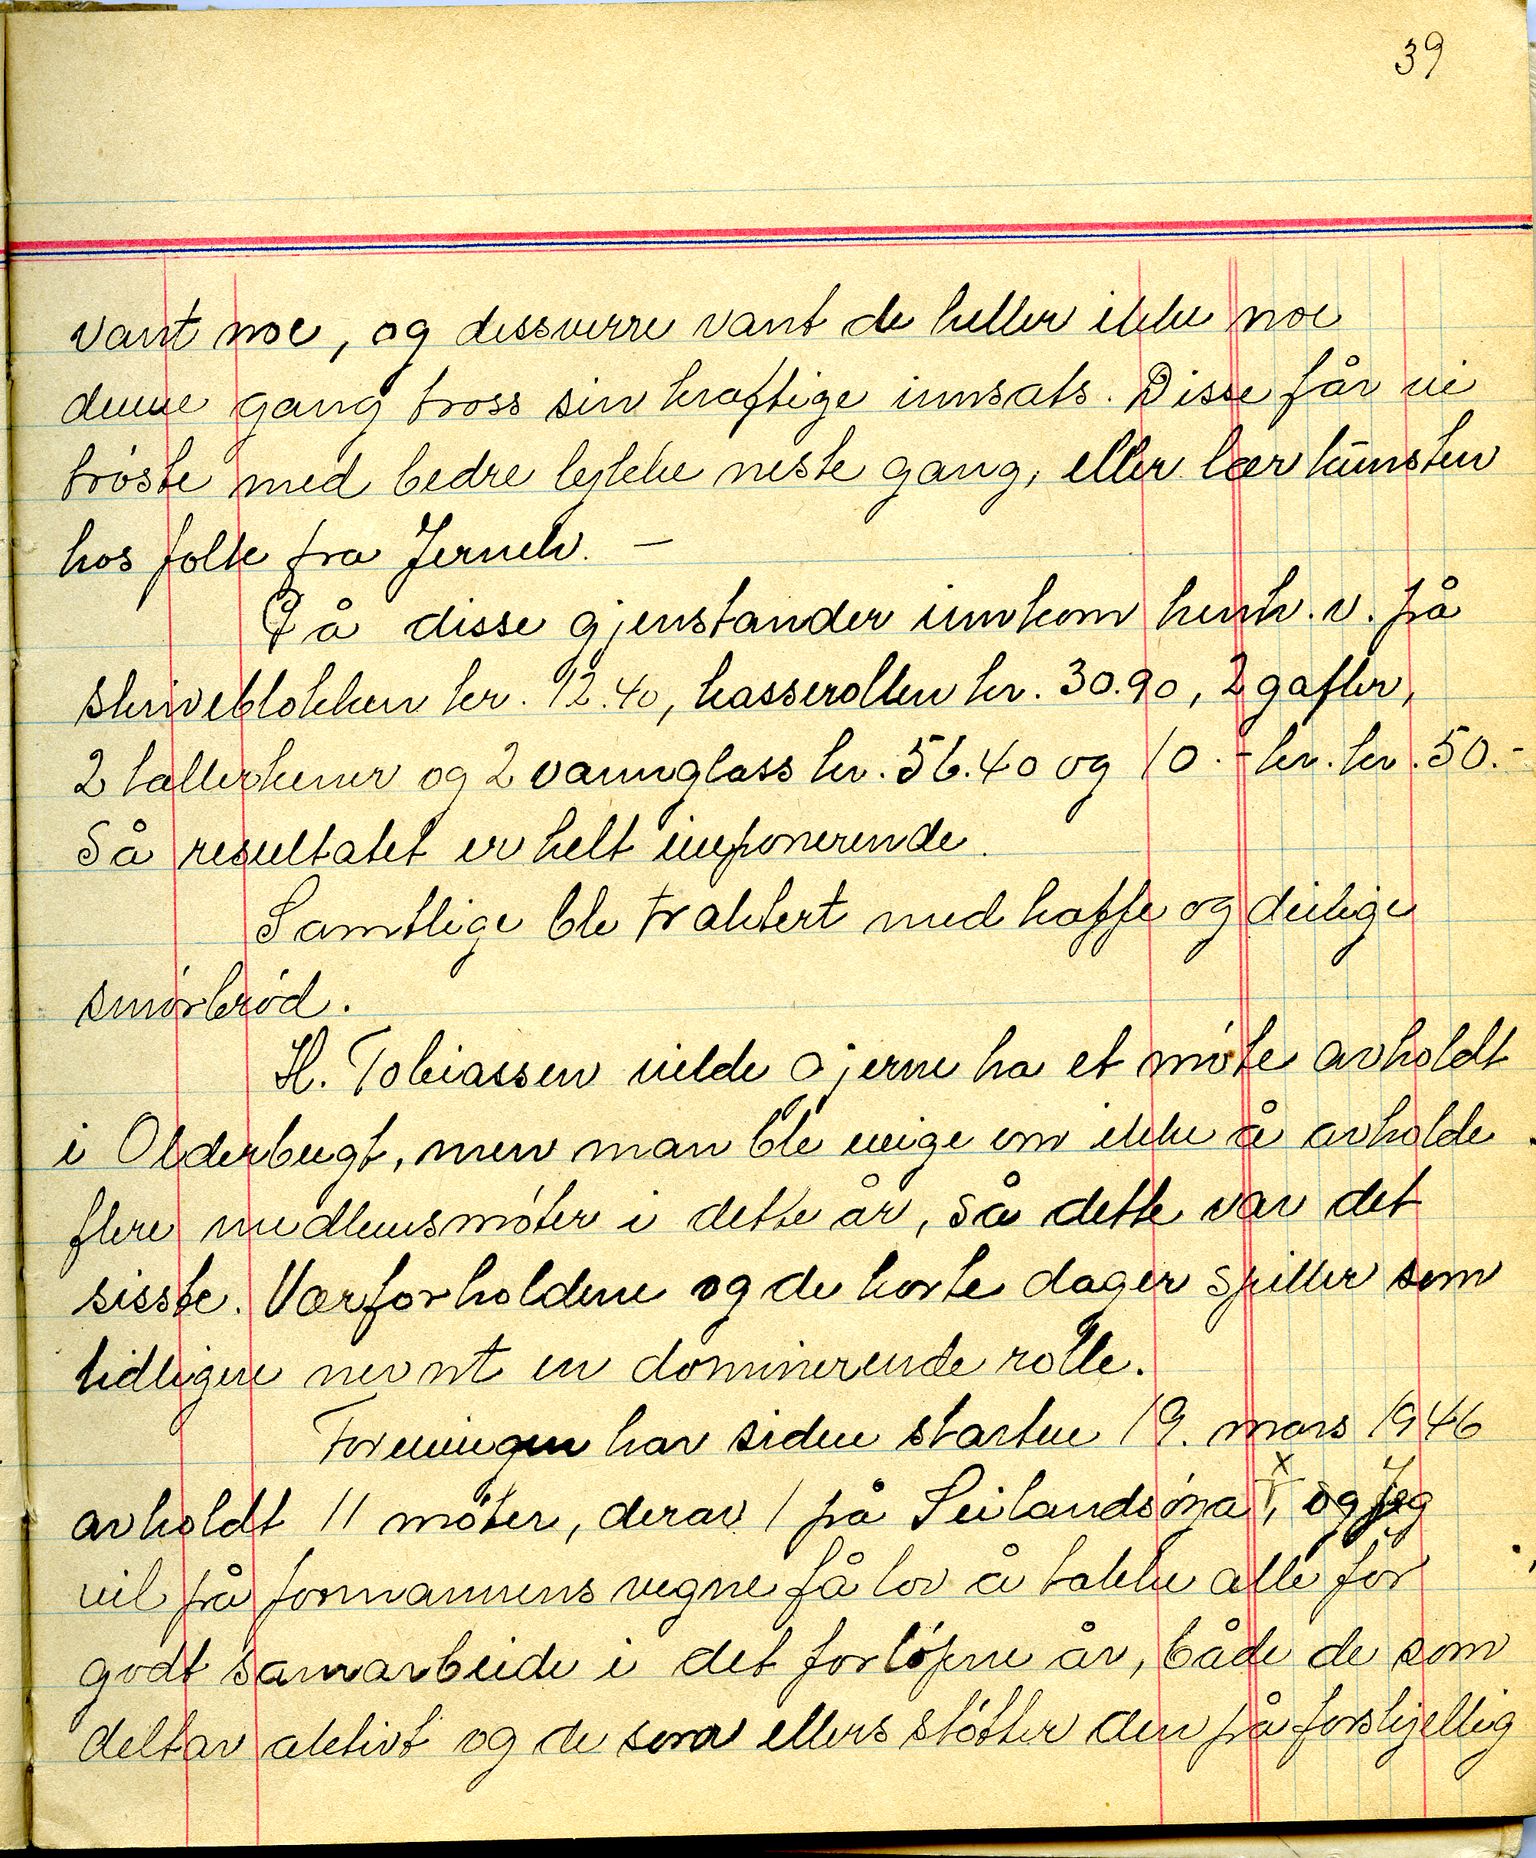 39
vant noe, og dessverre vant de heller ikke noe
denne gang tross sin kraftige innsats. Disse får vi
trøste med bedre lykke neste gang, eller lær kunsten
hos folk fra Jernelv. —
På disse gjenstander innkom henh. v. på
skriveblokken kr. 12.40, kasserollen kr. 30.90, 2 gafler,
2 tallerkener og 2 vannglass kr. 56.40 og 10.- kr. kr. 50.-
Så resultatet er helt imponerende.
Samtlige ble traktert med kaffe og deilige
smørbrød.
H. Tobiassen vilde gjerne ha et møte avholdt
i Olderbugt, men man ble enige om ikke å avholde
flere medlemsmøter i dette år, så dette var det
sisste. Værforholdene og de korte dager spiller som
tidligere nevnt en dominerende rolle.
Foreningen har siden starten 19. mars 1946
avholdt 11 møter, derav 1 på Seilandsøya, og jeg
vil på formannens vegne få lov å takke alle for
godt samarbeide i det forløpne år, både de som
deltar aktivt og de som ellers støtter den på forskjellig